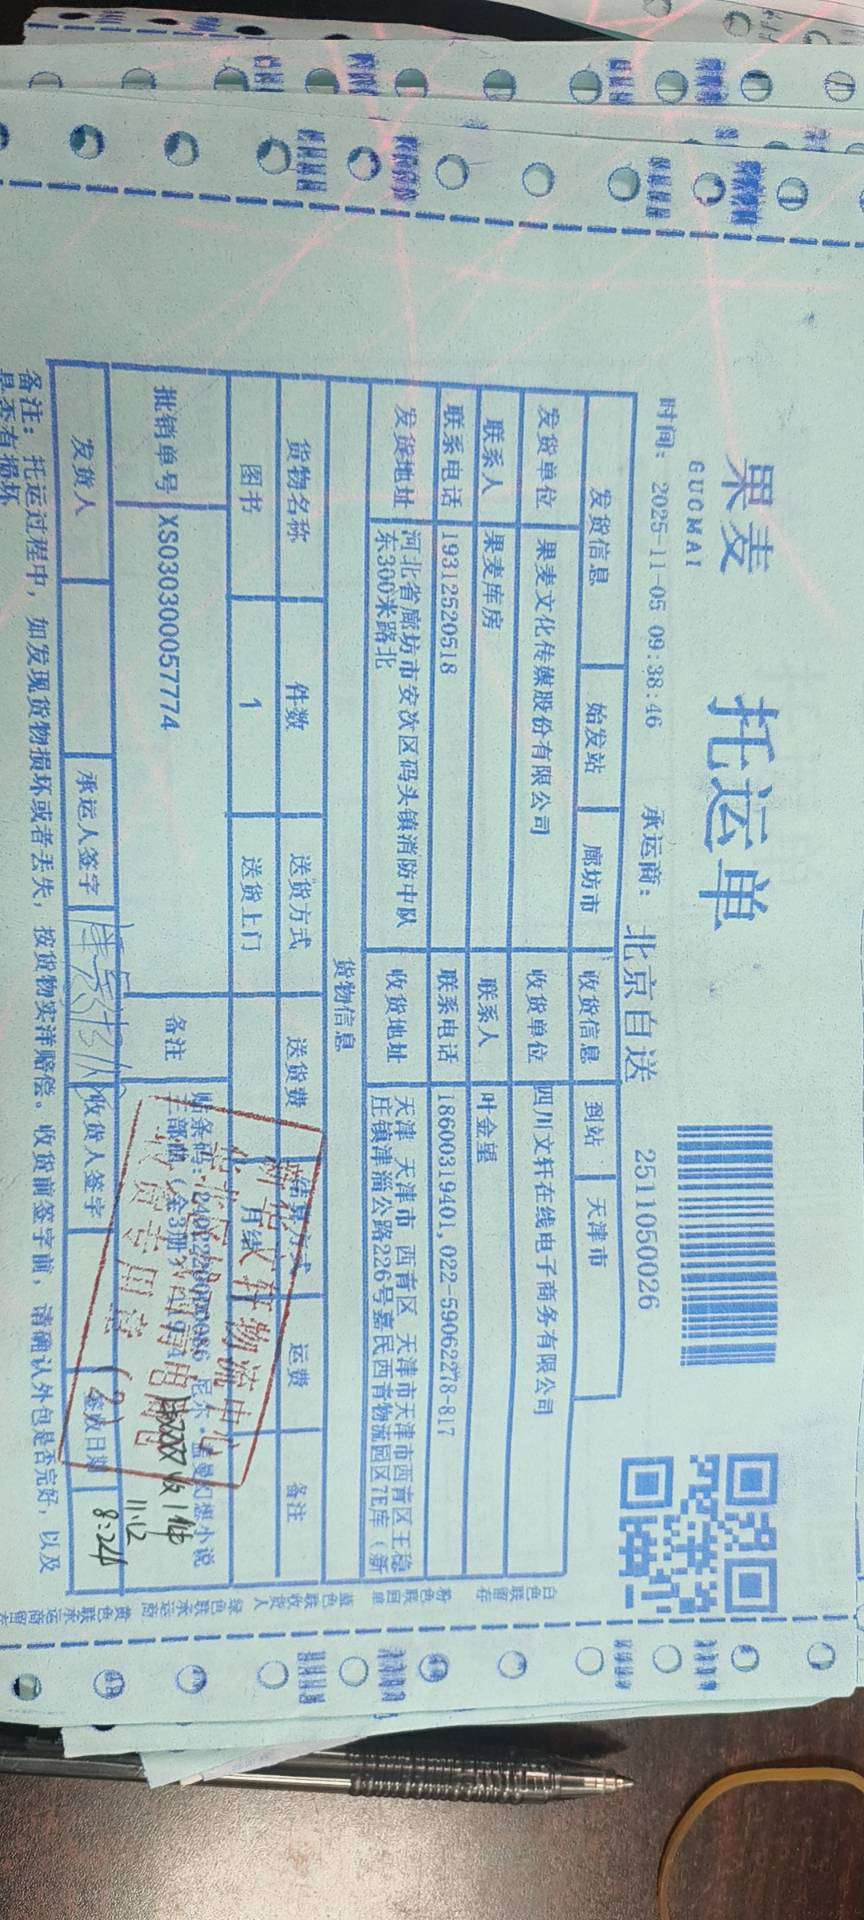 果麦
GUOMAI
托运单
时间: 2025-11-05 09:38:46 承运商: 北京自送 2511050026
发货信息 始发站 廊坊市 收货信息 到站 天津市
发货单位 果麦文化传媒股份有限公司 收货单位 四川文轩在线电子商务有限公司
联系人 果麦库房 联系人 叶金望
联系电话 19312520518 联系电话 18600319401,022-59062278-817
发货地址 河北省廊坊市安次区码头镇消防中队
东300米路北
收货地址 天津 天津市 西青区 天津市天津市西青区王稳
庄镇津淄公路226号嘉民西青物流园区7E库(新
货物信息
货物名称 件数 送货方式 送货费 结算方式 运费 备注
图书 1 送货上门 月结
批销单号 XS030300057774 备注 贴条码: 尼尔·盖曼幻想小说
三部曲(全3册)
收1件
11.12
8:24
发货人 承运人签字 收货人签字 签收日期
备注: 托运过程中, 如发现货物损坏或者丢失, 按货物实洋赔偿。收货前签字前, 请确认外包是否完好, 以及
是否有损坏
白色联留存 粉色联回单 蓝色联收货人 绿色联承运商 黄色联承运商留存